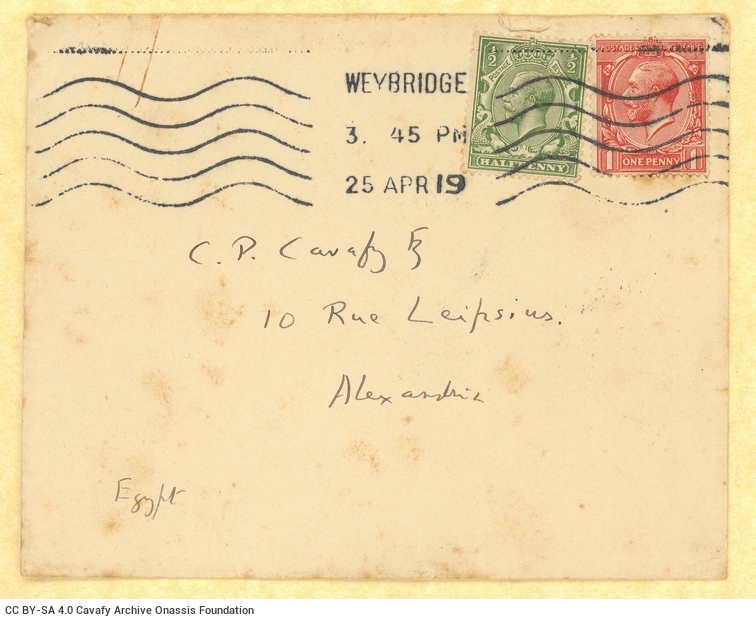 WEYBRIDGE
3. 45 PM
25 APR 19
½ ½
POSTAGE
HALFPENNY
POSTAGE REVENUE
1 ONE PENNY 1
C. P. Cavafy Esq
10 Rue Leipsius.
Alexandria
Egypt
CC BY-SA 4.0 Cavafy Archive Onassis Foundation